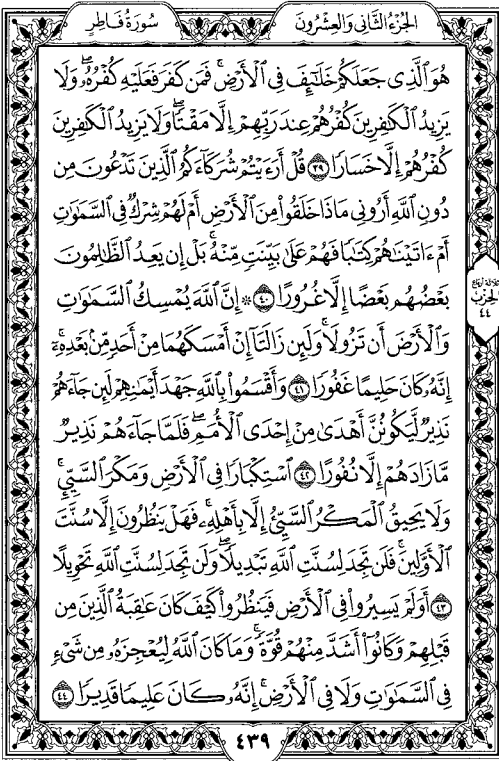 سُورَةُ فَاطِرٍ
الجُزْءُ الثَّانِي وَالعِشْرُونَ
هُوَ ٱلَّذِي جَعَلَكُمْ خَلَٰٓئِفَ فِي ٱلْأَرْضِۚ فَمَن كَفَرَ فَعَلَيْهِ كُفْرُهُۥۖ وَلَا
يَزِيدُ ٱلْكَٰفِرِينَ كُفْرُهُمْ عِندَ رَبِّهِمْ إِلَّا مَقْتًاۖ وَلَا يَزِيدُ ٱلْكَٰفِرِينَ
كُفْرُهُمْ إِلَّا خَسَارًا ٣٩ قُلْ أَرَءَيْتُمْ شُرَكَآءَكُمُ ٱلَّذِينَ تَدْعُونَ مِن
دُونِ ٱللَّهِ أَرُونِي مَاذَا خَلَقُوا۟ مِنَ ٱلْأَرْضِ أَمْ لَهُمْ شِرْكٌ فِي ٱلسَّمَٰوَٰتِ
أَمْ ءَاتَيْنَٰهُمْ كِتَٰبًا فَهُمْ عَلَىٰ بَيِّنَتٍ مِّنْهُۚ بَلْ إِن يَعِدُ ٱلظَّٰلِمُونَ
بَعْضُهُم بَعْضًا إِلَّا غُرُورًا ٤٠ ۞ إِنَّ ٱللَّهَ يُمْسِكُ ٱلسَّمَٰوَٰتِ
وَٱلْأَرْضَ أَن تَزُولَاۚ وَلَئِن زَالَتَآ إِنْ أَمْسَكَهُمَا مِنْ أَحَدٍ مِّنۢ بَعْدِهِۦٓۚ
إِنَّهُۥ كَانَ حَلِيمًا غَفُورًا ٤١ وَأَقْسَمُوا۟ بِٱللَّهِ جَهْدَ أَيْمَٰنِهِمْ لَئِن جَآءَهُمْ
نَذِيرٌ لَّيَكُونُنَّ أَهْدَىٰ مِنْ إِحْدَى ٱلْأُمَمِۖ فَلَمَّا جَآءَهُمْ نَذِيرٌ
مَّا زَادَهُمْ إِلَّا نُفُورًا ٤٢ ٱسْتِكْبَارًا فِي ٱلْأَرْضِ وَمَكْرَ ٱلسَّيِّئِۚ
وَلَا يَحِيقُ ٱلْمَكْرُ ٱلسَّيِّئُ إِلَّا بِأَهْلِهِۦۚ فَهَلْ يَنظُرُونَ إِلَّا سُنَّتَ
ٱلْأَوَّلِينَۚ فَلَن تَجِدَ لِسُنَّتِ ٱللَّهِ تَبْدِيلًاۖ وَلَن تَجِدَ لِسُنَّتِ ٱللَّهِ تَحْوِيلًا
٤٣ أَوَلَمْ يَسِيرُوا۟ فِي ٱلْأَرْضِ فَيَنظُرُوا۟ كَيْفَ كَانَ عَٰقِبَةُ ٱلَّذِينَ مِن
قَبْلِهِمْ وَكَانُوٓا۟ أَشَدَّ مِنْهُمْ قُوَّةًۚ وَمَا كَانَ ٱللَّهُ لِيُعْجِزَهُۥ مِن شَيْءٍ
فِي ٱلسَّمَٰوَٰتِ وَلَا فِي ٱلْأَرْضِۚ إِنَّهُۥ كَانَ عَلِيمًا قَدِيرًا ٤٤
ثلاثة أرباع
الحزب
٤٤
٤٣٩